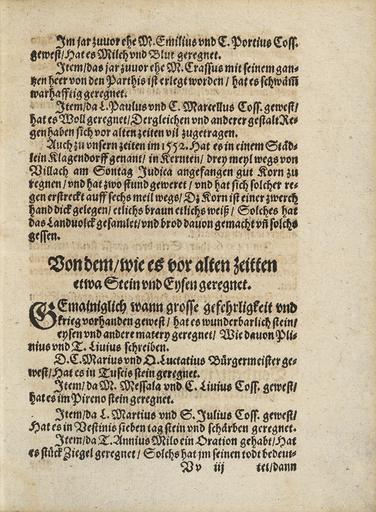 Im jar zuuor ehe M. Emilius vnd C. Portius Coss.
gewest/ Hat es Milch vnd Blut geregnet.
Item/das jar zuuor ehe M. Crassus mit seinem gan-
tzen heer von den Parthis ist erlegt worden / hat es schwäm̃
warhafftig geregnet.
Item/ da L. Paulus vnd C. Marcellus Coss. gewest/
hat es Woll geregnet/Dergleichen vnd anderer gestalt Re-
gen haben sich vor alten zeiten vil zugetragen.
Auch zu vnsern zeiten im 1552. Hat es in einem Städ-
lein Klagendorff genant/ in Kernten/ drey meyl wegs von
Villach am Sontag Judica angefangen gut Korn zu
regnen/ vnd hat zwo stund geweret / vnd hat sich solcher re-
gen erstreckt auff sechs meil wegs/ Dz Korn ist einer zwerch
hand dick gelegen/ etlichs braun etlichs weiß/ Solches hat
das Landuolck gesamlet/ vnd brod dauon gemacht vn̄ solchs
gessen.
Von dem/ wie es vor alten zeitten
etwa Stein vnd Eysen geregnet.
GEmainiglich wann grosse gefehrligkeit vnd
krieg vorhanden gewest/ hat es wunderbarlich stein/
eysen vnd andere matery geregnet/ Wie dauon Pli-
nius vnd T. Liuius schreiben.
D. C. Marius vnd Q. Luctatius Bürgermeister ge-
west/ Hat es in Tuscis stein geregnet.
Item/ da M. Messala vnd C. Liuius Coss. gewest/
hat es im Piceno stein geregnet.
Item/ da L. Martius vnd S. Julius Coss. gewest/
Hat es in Vestinis sieben tag stein vnd schärben geregnet.
Item/ da T. Annius Milo ein Oration gehabt/ Hat
es stück Ziegel geregnet/ Solchs hat jm seinen todt bedeut-
Vv iij tet/dann